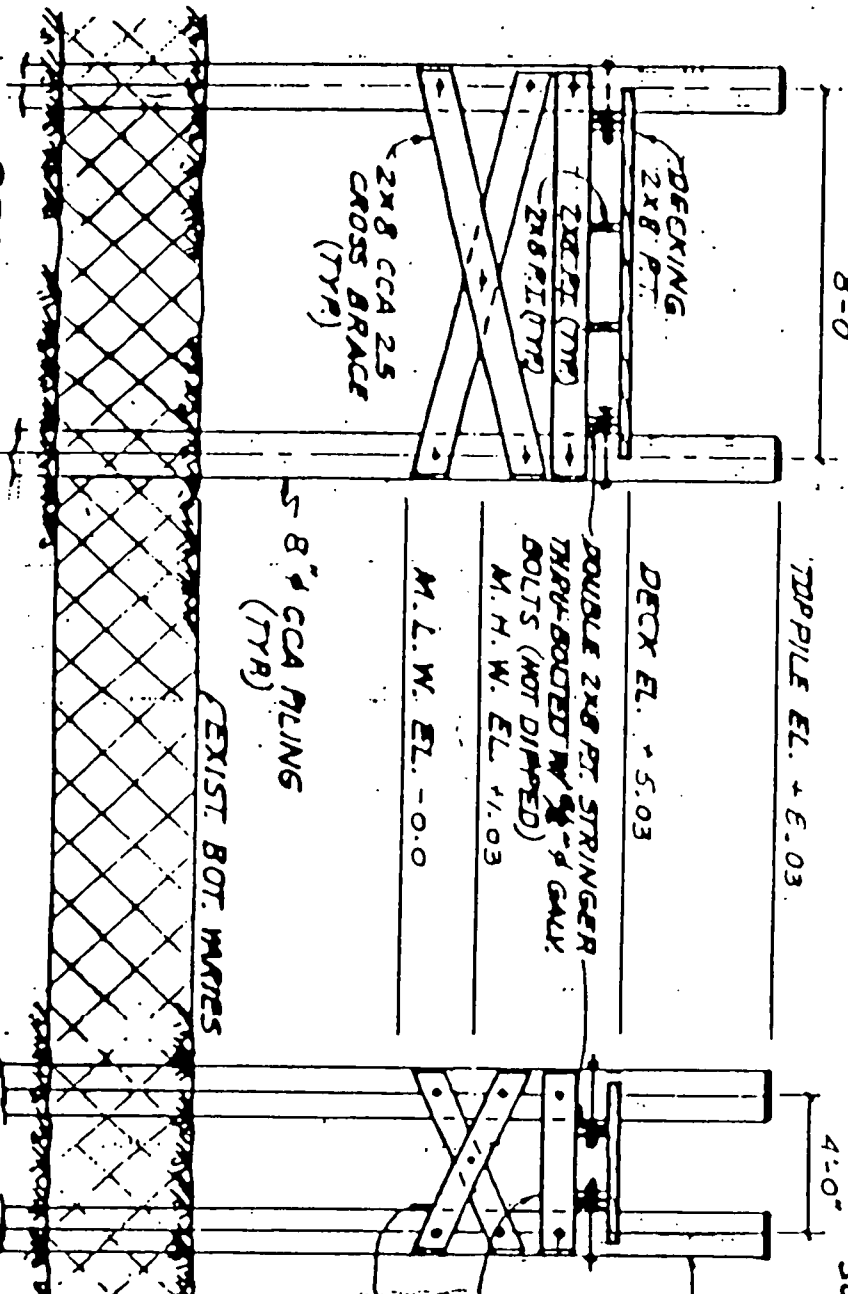 8-0
4'-0"
TOPPILE EL. +
DECK EL. +5.03
DOUBLE 2X8 P.T. STRINGER
THRU-BOLTED W/ GALV.
BOLTS (HOT DIPPED)
M.H.W. EL. +1.03
M.L.W. EL. -0.0
DECKING
2X8 P.T.
2X8 P.T (TYP)
2X8 P.T (TYP)
2X8 CCA 2.5
CROSS BRACE
(TYP)
8"⌀ CCA PILING
(TYP)
EXIST. BOT. VARIES